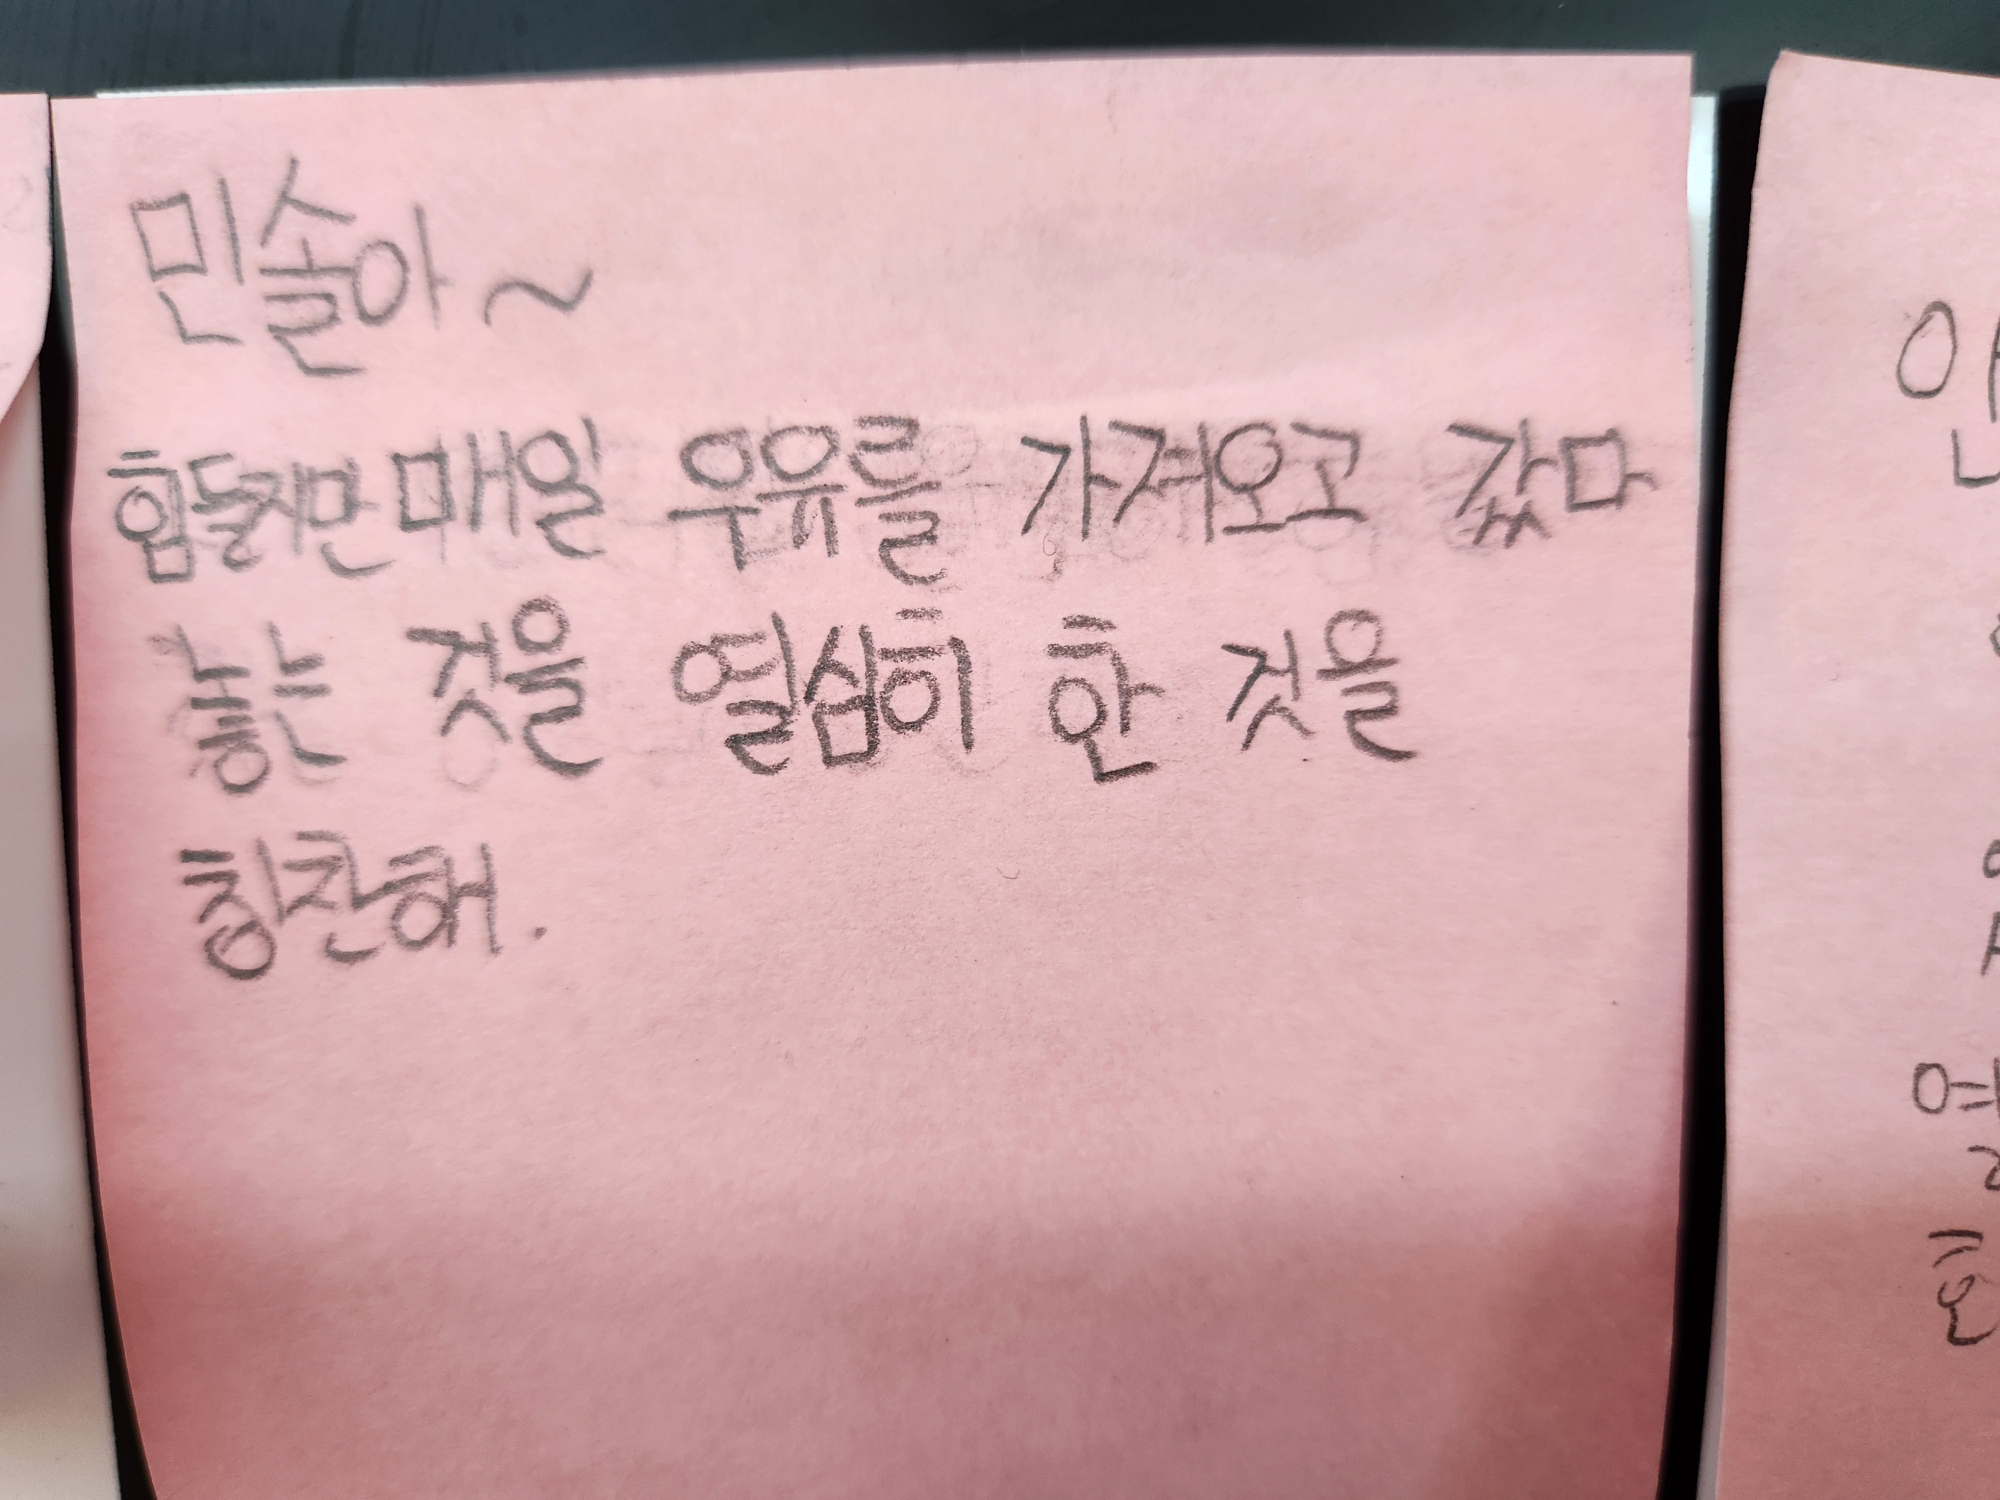 민솔아~
힘들지만 매일 우유를 가져오고 갔다
놓는 것을 열심히 한 것을
칭찬해.